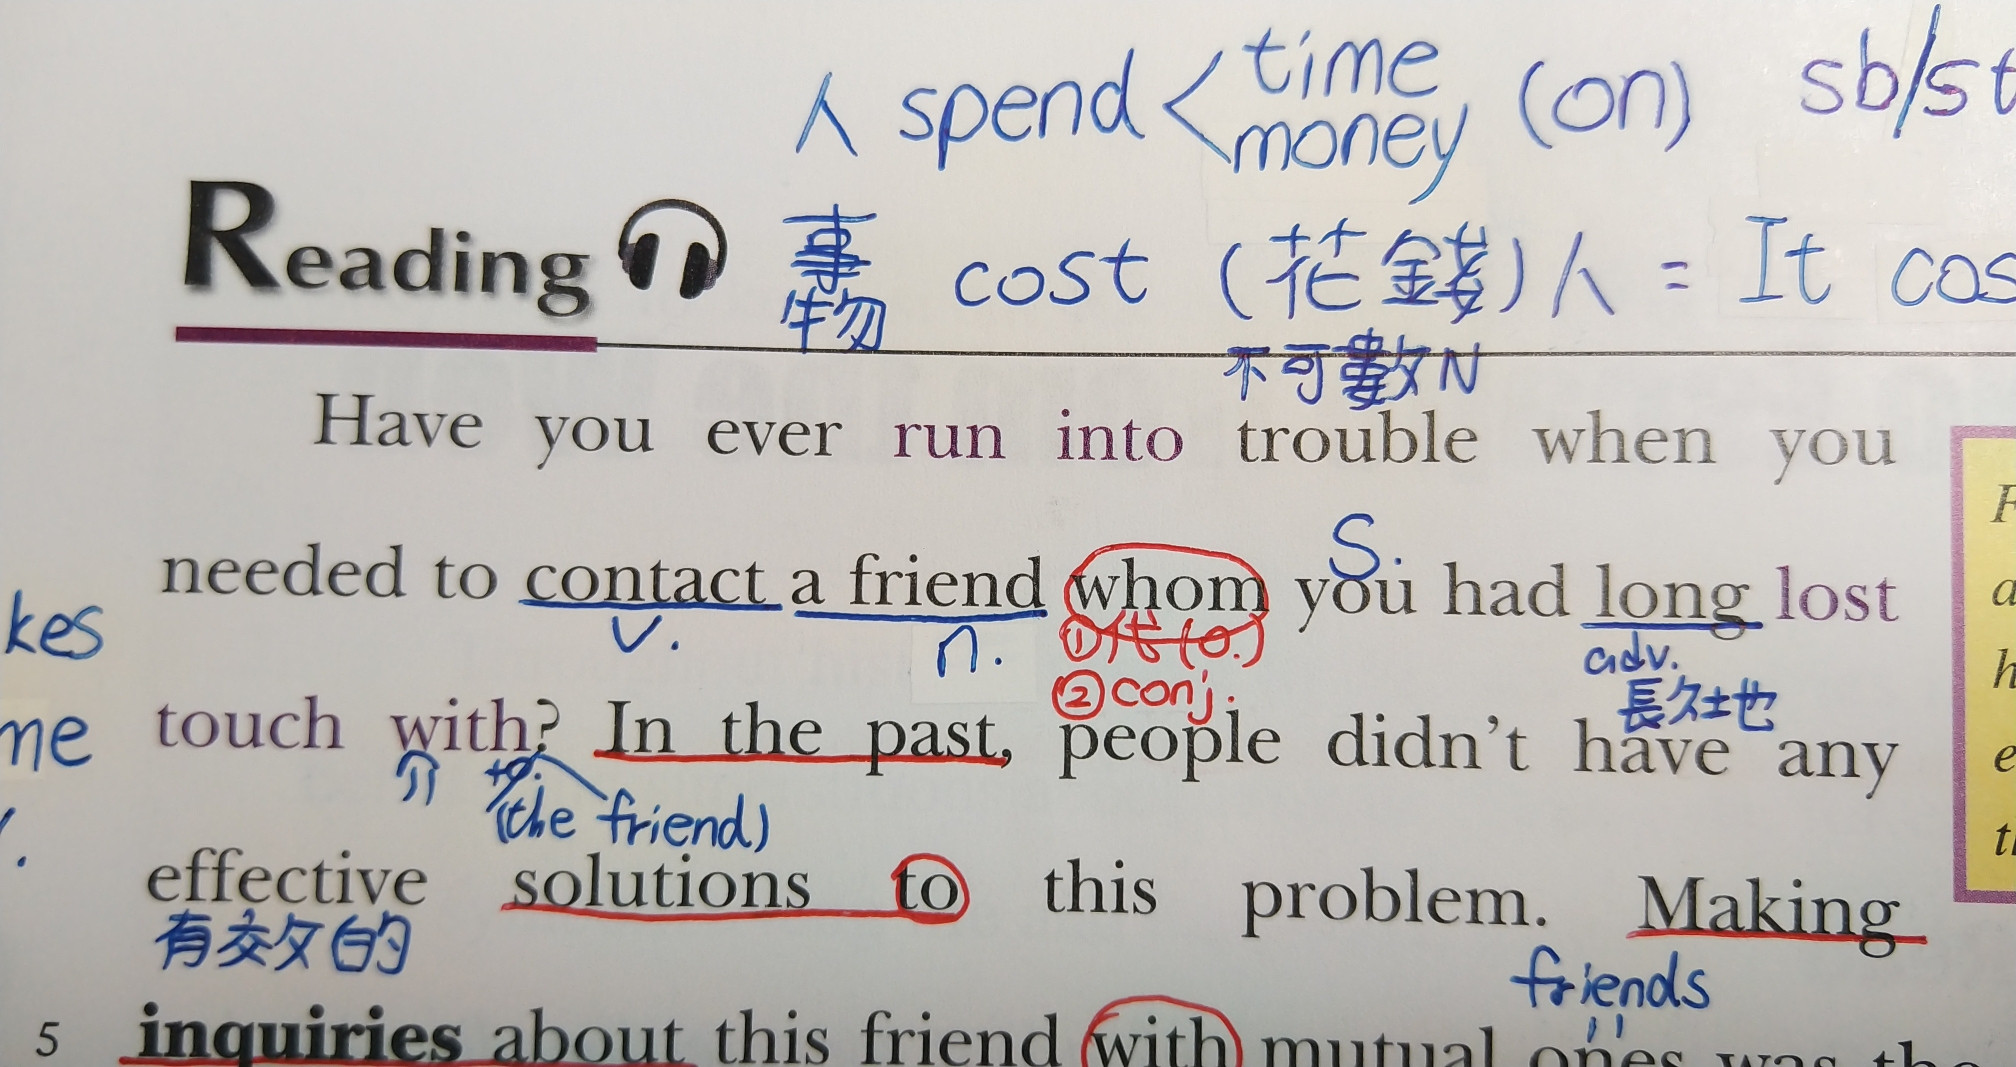 人 spend < time money (on) sb/st
Reading
事物 cost (花金錢)人 = It cos
不可數N
Have you ever run into trouble when you
S.
needed to contact a friend whom you had long lost
kes
v. n. ①代(o.) adv.
②conj. 長久地
me
touch with? In the past, people didn't have any
介 +o.
(the friend)
effective solutions to this problem. Making
有效的
friends
5 inquiries about this friend with mutual ones was the